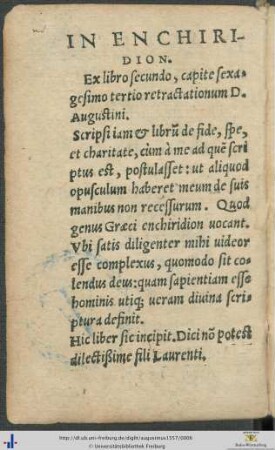 IN ENCHIRI-
DION.
Ex libro secundo, capite sexa-
gesimo tertio retractationum D.
Augustini.
Scripsi iam & librũ de fide, spe,
et charitate, cùm à me ad quẽ scri
ptus est, postulasset: ut aliquod
opusculum haberet meum de suis
manibus non recessurum. Quod
genus Græci enchiridion uocant.
Vbi satis diligenter mihi uideor
esse complexus, quomodo sit co-
lendus deus: quam sapientiam esse
hominis utiq; ueram diuina scri-
ptura definit.
Hic liber sic incipit. Dici nõ potest
dilectißime fili Laurenti.
http://dl.ub.uni-freiburg.de/diglit/augustinus1557/0006
© Universitätsbibliothek Freiburg